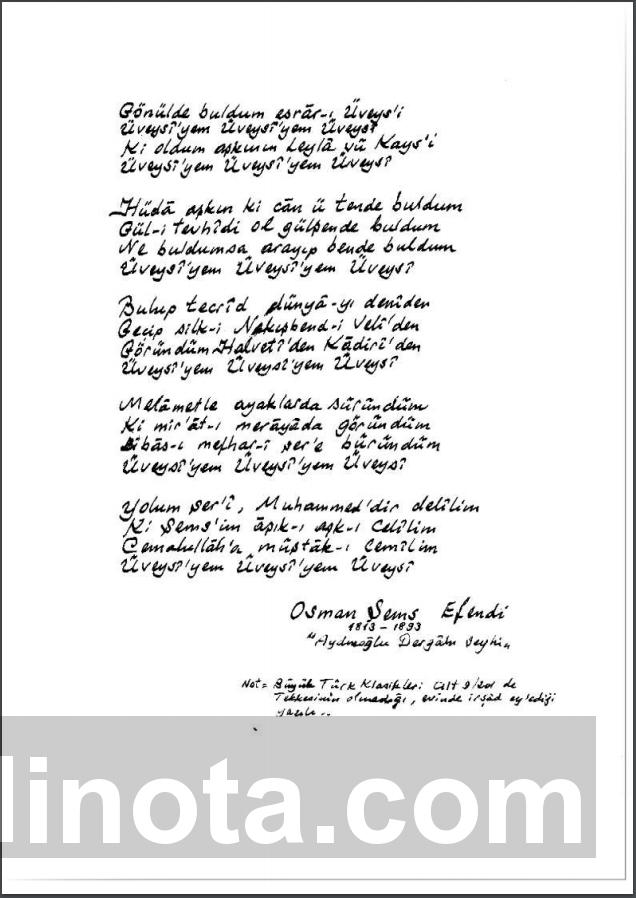 Gönülde buldum esrâr-ı Üveys'i
Üveysî'yem Üveysî'yem Üveysî
Ki oldum aşkının Leylâ vü Kays'i
Üveysî'yem Üveysî'yem Üveysî
Hüdâ aşkın ki cân ü tende buldum
Gül-i tevhîdi ol gülşende buldum
Ne buldumsa arayıp bende buldum
Üveysî'yem Üveysî'yem Üveysî
Bulup tecrîd dünyâ-yı denîden
Geçip silk-i Nakışbend-i Velî'den
Göründüm Halvetî'den Kâdirî'den
Üveysî'yem Üveysî'yem Üveysî
Melâmetle ayaklarda süründüm
Ki mir'ât-ı merâyâda göründüm
Libâs-ı mefhar-î şer'e büründüm
Üveysî'yem Üveysî'yem Üveysî
Yolum şer'î, Muhammed'dir delîlim
Ki Şems'im âşık-ı aşk-ı Celîlim
Cemalullâh'a müştâk-ı Cemîlim
Üveysî'yem Üveysî'yem Üveysî
Osman Şems Efendi
1813 - 1893
"Aydınoğlu Dergâhı Şeyhi"
Not= Büyük Türk Klasikleri Cilt 9/201 de
Tekkesinin olmadığı, evinde irşâd eylediği
yazılı..
linota.com